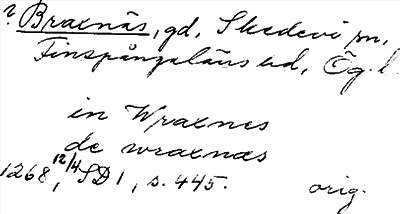 ? Braxnäs, gd, Skedevi sn,
Finspångaläns hd, Ög. l.
in Wraxnes
de wraxnæs
1268 12/4, SD 1, s. 445. orig.